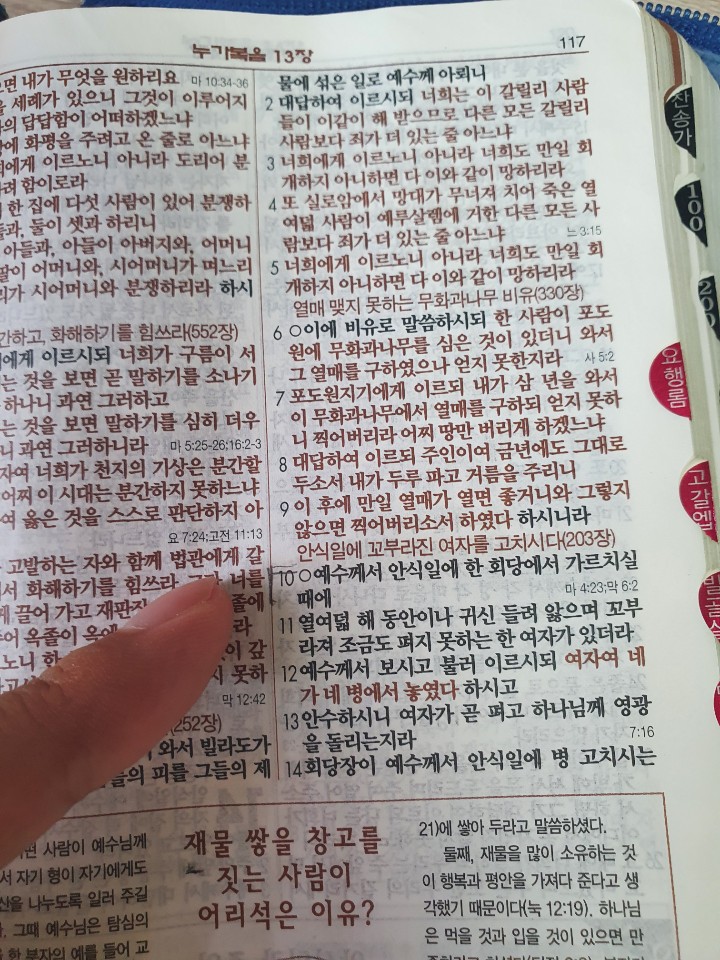 누가복음 13장
117
면 내가 무엇을 원하리요 마 10:34-36
을 세례가 있으니 그것이 이루어지
의 답답함이 어떠하겠느냐
에 화평을 주려고 온 줄로 아느냐
에게 이르노니 아니라 도리어 분
려 함이로라
한 집에 다섯 사람이 있어 분쟁하
들과, 둘이 셋과 하리니
아들과, 아들이 아버지와, 어머니
딸이 어머니와, 시어머니가 며느리
리가 시어머니와 분쟁하리라 하시
간하고, 화해하기를 힘쓰라(552장)
에게 이르시되 너희가 구름이 서
는 것을 보면 곧 말하기를 소나기
하나니 과연 그러하고
는 것을 보면 말하기를 심히 더우
니 과연 그러하니라 마 5:25-26;16:2-3
자여 너희가 천지의 기상은 분간할
어찌 이 시대는 분간하지 못하느냐
여 옳은 것을 스스로 판단하지 아
요 7:24;고전 11:13
고발하는 자와 함께 법관에게 갈
서 화해하기를 힘쓰라 너를
끌어 가고 재판장 졸에
어 옥졸이 옥에 라
노니 한 이 갚
지 못하
막 12:42
(252장)
와서 빌라도가
들의 피를 그들의 제
물에 섞은 일로 예수께 아뢰니
2 대답하여 이르시되 너희는 이 갈릴리 사람
들이 이같이 해 받으므로 다른 모든 갈릴리
사람보다 죄가 더 있는 줄 아느냐
3 너희에게 이르노니 아니라 너희도 만일 회
개하지 아니하면 다 이와 같이 망하리라
4 또 실로암에서 망대가 무너져 치어 죽은 열
여덟 사람이 예루살렘에 거한 다른 모든 사
람보다 죄가 더 있는 줄 아느냐 느 3:15
5 너희에게 이르노니 아니라 너희도 만일 회
개하지 아니하면 다 이와 같이 망하리라
열매 맺지 못하는 무화과나무 비유(330장)
6 ○이에 비유로 말씀하시되 한 사람이 포도
원에 무화과나무를 심은 것이 있더니 와서
그 열매를 구하였으나 얻지 못한지라 사 5:2
7 포도원지기에게 이르되 내가 삼 년을 와서
이 무화과나무에서 열매를 구하되 얻지 못하
니 찍어버리라 어찌 땅만 버리게 하겠느냐
8 대답하여 이르되 주인이여 금년에도 그대로
두소서 내가 두루 파고 거름을 주리니
9 이 후에 만일 열매가 열면 좋거니와 그렇지
않으면 찍어버리소서 하였다 하시니라
안식일에 꼬부라진 여자를 고치시다(203장)
10 ○예수께서 안식일에 한 회당에서 가르치실
때에 마 4:23;막 6:2
11 열여덟 해 동안이나 귀신 들려 앓으며 꼬부
라져 조금도 펴지 못하는 한 여자가 있더라
12 예수께서 보시고 불러 이르시되 여자여 네
가 네 병에서 놓였다 하시고
13 안수하시니 여자가 곧 펴고 하나님께 영광
을 돌리는지라 7:16
14 회당장이 예수께서 안식일에 병 고치시는
떤 사람이 예수님께
서 자기 형이 자기에게도
산을 나누도록 일러 주길
그때 예수님은 탐심의
한 부자의 예를 들어 교
재물 쌓을 창고를
짓는 사람이
어리석은 이유?
21)에 쌓아 두라고 말씀하셨다.
둘째, 재물을 많이 소유하는 것
이 행복과 평안을 가져다 준다고 생
각했기 때문이다(눅 12:19). 하나님
은 먹을 것과 입을 것이 있으면 만
찬송가
100
200
요 행 롬
고 갈 엡